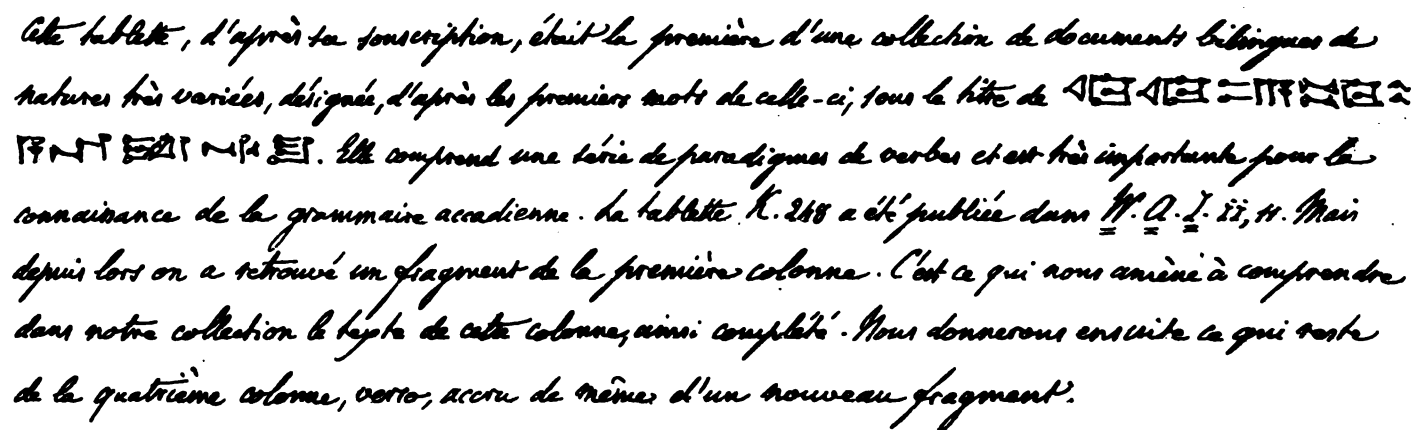 Cette tablette, d'après sa souscription, était la première d'une collection de documents bilingues de
natures très variées, désignée, d'après les premiers mots de celle-ci, sous le titre de
. Elle comprend une série de paradigmes de verbes et est très importante pour la
connaissance de la grammaire accadienne. La tablette K. 248 a été publiée dans W. A. I. ii, 11. Mais
depuis lors on a retrouvé un fragment de la première colonne. C'est ce qui nous amène à comprendre
dans notre collection le texte de cette colonne, ainsi complété. Nous donnerons ensuite ce qui reste
de la quatrième colonne, verso, accru de même d'un nouveau fragment.